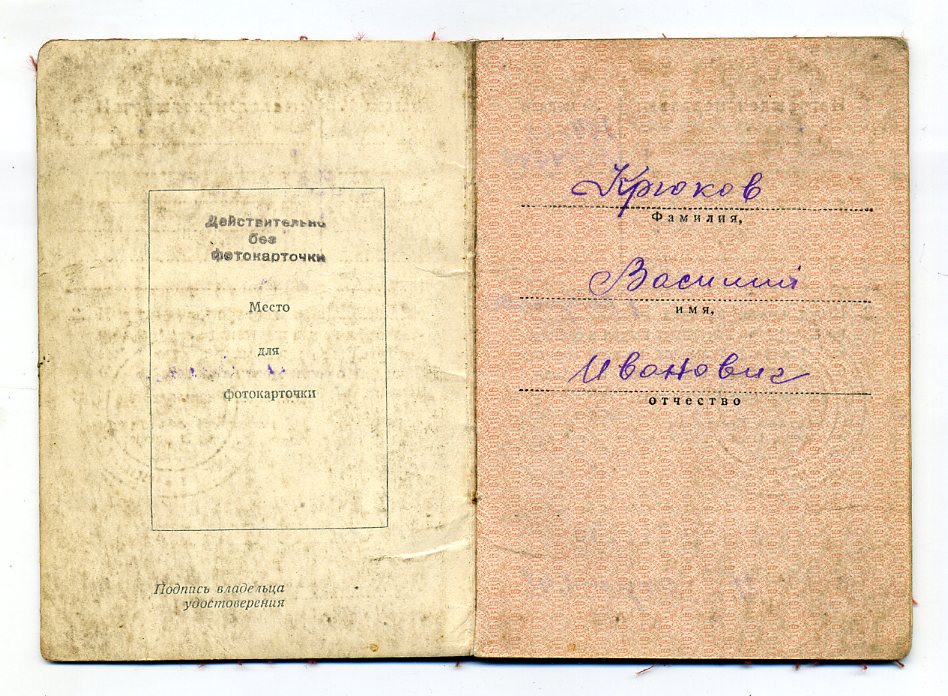 Действительно
без
фотокарточки
Место
для
фотокарточки
Подпись владельца
удостоверения
Крюков
Фамилия,
Василий
имя,
Иванович
отчество